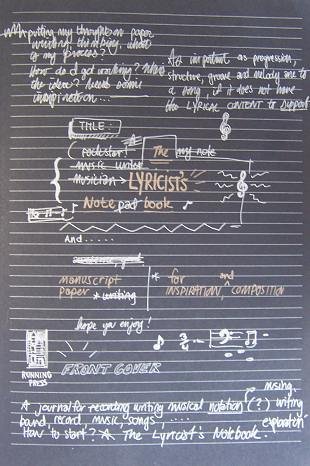 putting my thoughts on paper
writing, thinking, what
is my process?
How do I get writing?
the idea? Need some
inspiration...
As important as progression,
structure, groove and melody are to
a song, if it does not have
the LYRICAL CONTENT to support
TITLE:
rockstar! The my note
music writer
musician → LYRICIST'S
Note pad book
And.....
manuscript * for and
paper * writing INSPIRATION, COMPOSITION
hope you enjoy!
3/4
RUNNING
PRESS
FRONT COVER
musing,
A journal for recording writing musical notation (?) writing
sound, record, music, songs ..... exploration
How to start? A The Lyricist's Notebook.